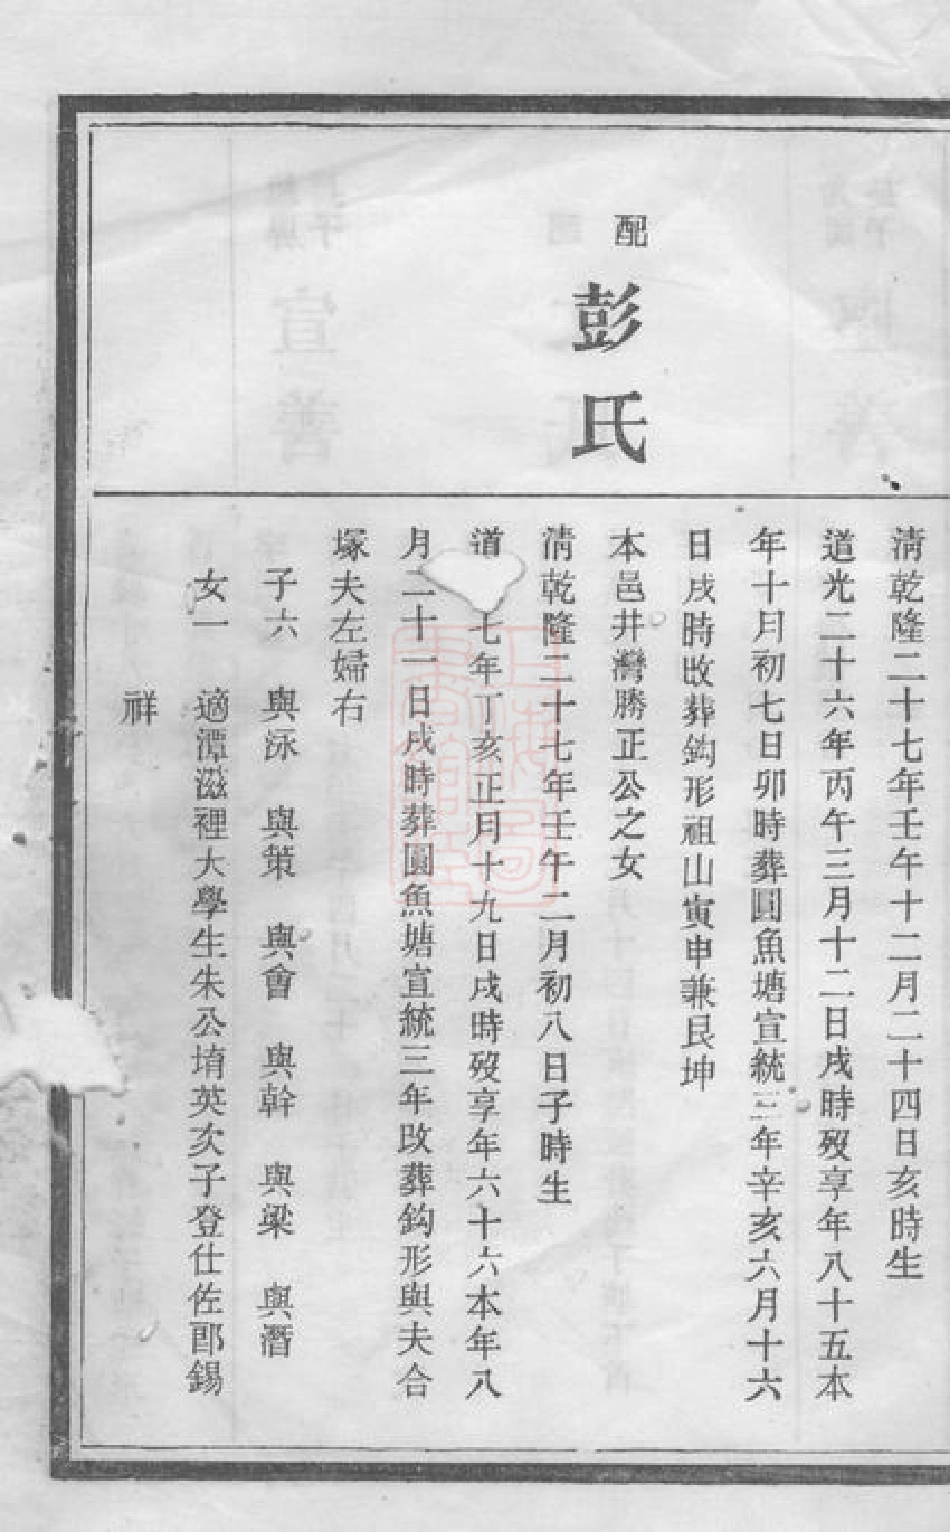 清乾隆二十七年壬午十二月二十四日亥時生
道光二十六年丙午三月十二日戌時歿享年八十五本
年十月初七日卯時葬圓魚塘宣統三年辛亥六月十六
日戌時改葬鈎形祖山寅申兼艮坤
配
彭氏
本邑井灣勝正公之女
清乾隆二十七年壬午二月初八日子時生
道 七年丁亥正月十九日戌時歿享年六十六本年八
月二十一日戌時葬圓魚塘宣統三年改葬鈎形與夫合
塚夫左婦右
子六 與泳 與策 與會 與幹 與梁 與潛
女一 適潭滋裡大學生朱公堉英次子登仕佐郎錫
祥